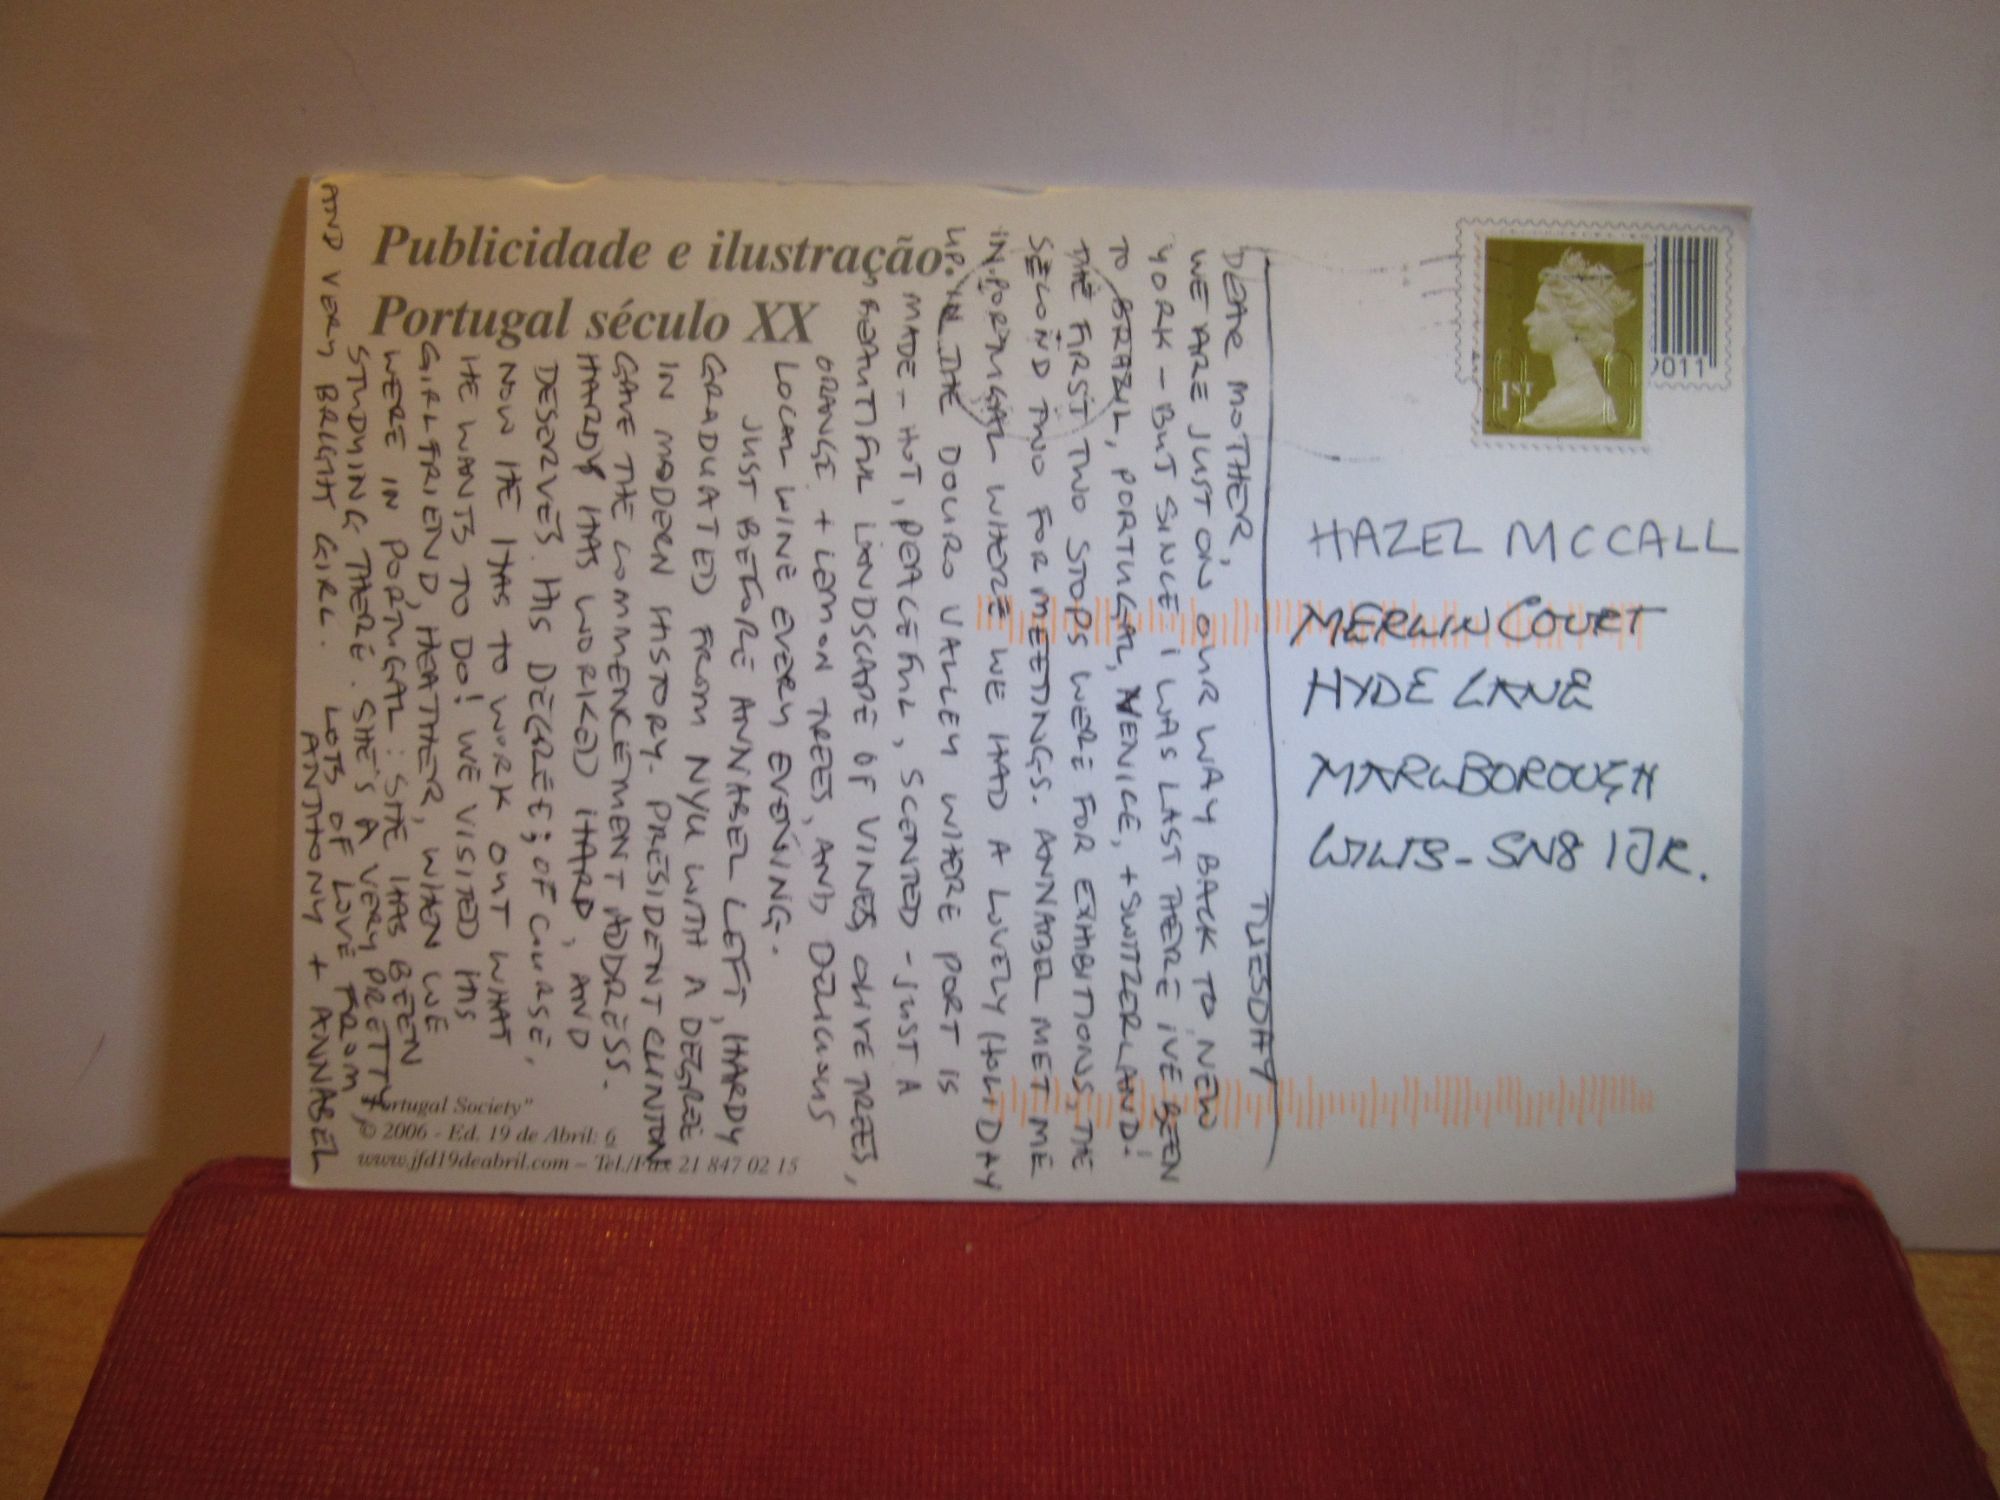 Publicidade e ilustração.
Portugal século XX
1ST
2011
HAZEL MCCALL
MERLIN COURT
HYDE LANE
MARLBOROUGH
WILTS - SN8 1JR.
TUESDAY
DEAR MOTHER,
WE ARE JUST ON OUR WAY BACK TO NEW
YORK - BUT SINCE I WAS LAST THERE IVE BEEN
TO BRAZIL, PORTUGAL, VENICE, + SWITZERLAND!
THE FIRST TWO STOPS WERE FOR EXHIBITIONS, THE
SECOND TWO FOR MEETINGS. ANNABEL MET ME
IN PORTUGAL WHERE WE HAD A LOVELY HOLIDAY
UP IN THE DOURO VALLEY WHERE PORT IS
MADE - HOT, PEACEFUL, SCENTED - JUST A
BEAUTIFUL LANDSCAPE OF VINES, OLIVE TREES,
ORANGE + LEMON TREES, AND DELICIOUS
LOCAL WINE EVERY EVENING.
JUST BEFORE ANNABEL LEFT, HARDY
GRADUATED FROM NYU WITH A DEGREE
IN MODERN HISTORY. PRESIDENT CLINTON
GAVE THE COMMENCEMENT ADDRESS.
HARDY HAS WORKED HARD, AND
DESERVES HIS DEGREE; OF COURSE,
NOW HE HAS TO WORK OUT WHAT
HE WANTS TO DO! WE VISITED HIS
GIRLFRIEND, HEATHER, WHEN WE
WERE IN PORTUGAL: SHE HAS BEEN
STUDYING THERE. SHE'S A VERY PRETTY,
AND VERY BRIGHT GIRL. LOTS OF LOVE FROM
ANTHONY + ANNABEL
"Portugal Society"
© 2006 - Ed. 19 de Abril: 6
www.jfd19deabril.com – Tel./Fax 21 847 02 15